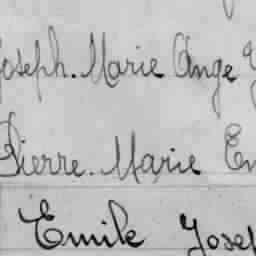 Joseph. Marie Ange
Pierre. Marie Em
Emile Josep